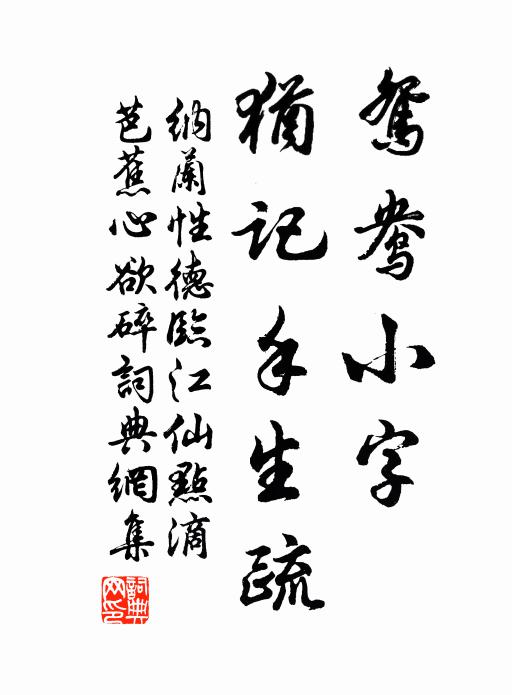 鴛鴦小字
猶記手生疏
納蘭性德臨江仙點滴
芭蕉心欲碎詞典網集
詞典网印